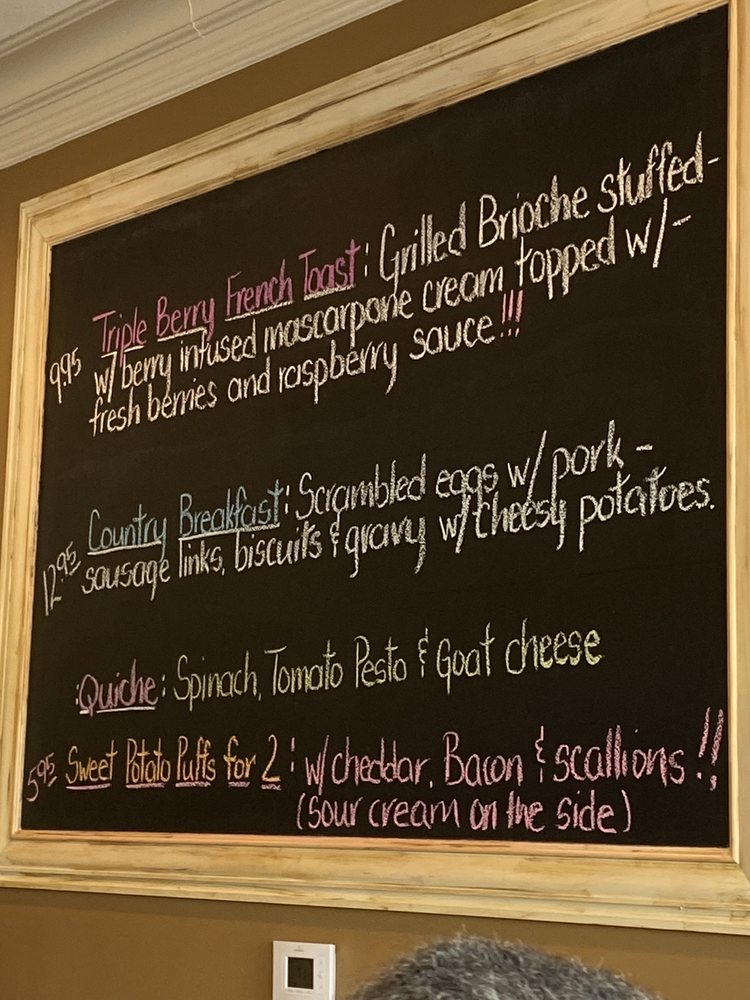 9.95 Triple Berry French Toast: Grilled Brioche stuffed-
w/ berry infused mascarpone cream topped w/-
fresh berries and raspberry sauce!!!
12.95 Country Breakfast: Scrambled eggs w/ pork-
sausage links, biscuits & gravy w/ cheesy potatoes.
:Quiche: Spinach, Tomato Pesto & Goat cheese
5.95 Sweet Potato Puffs for 2: w/ cheddar, Bacon & scallions!!
(sour cream on the side)